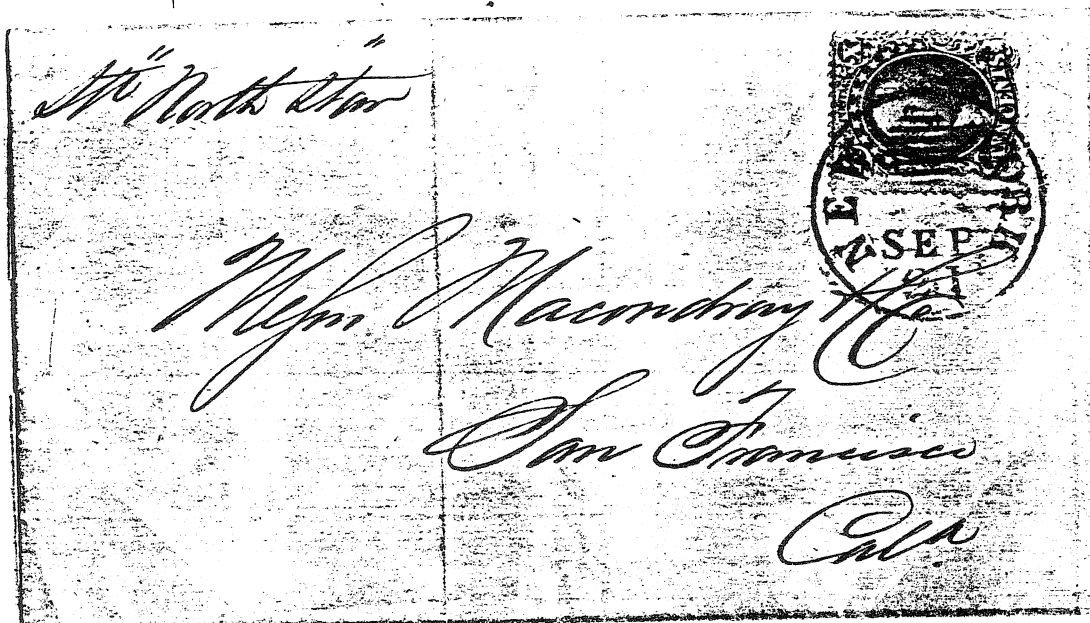 Str "North Star"
NEW YORK
SEP
21
Messrs. Macondray & Co
San Francisco
Cala